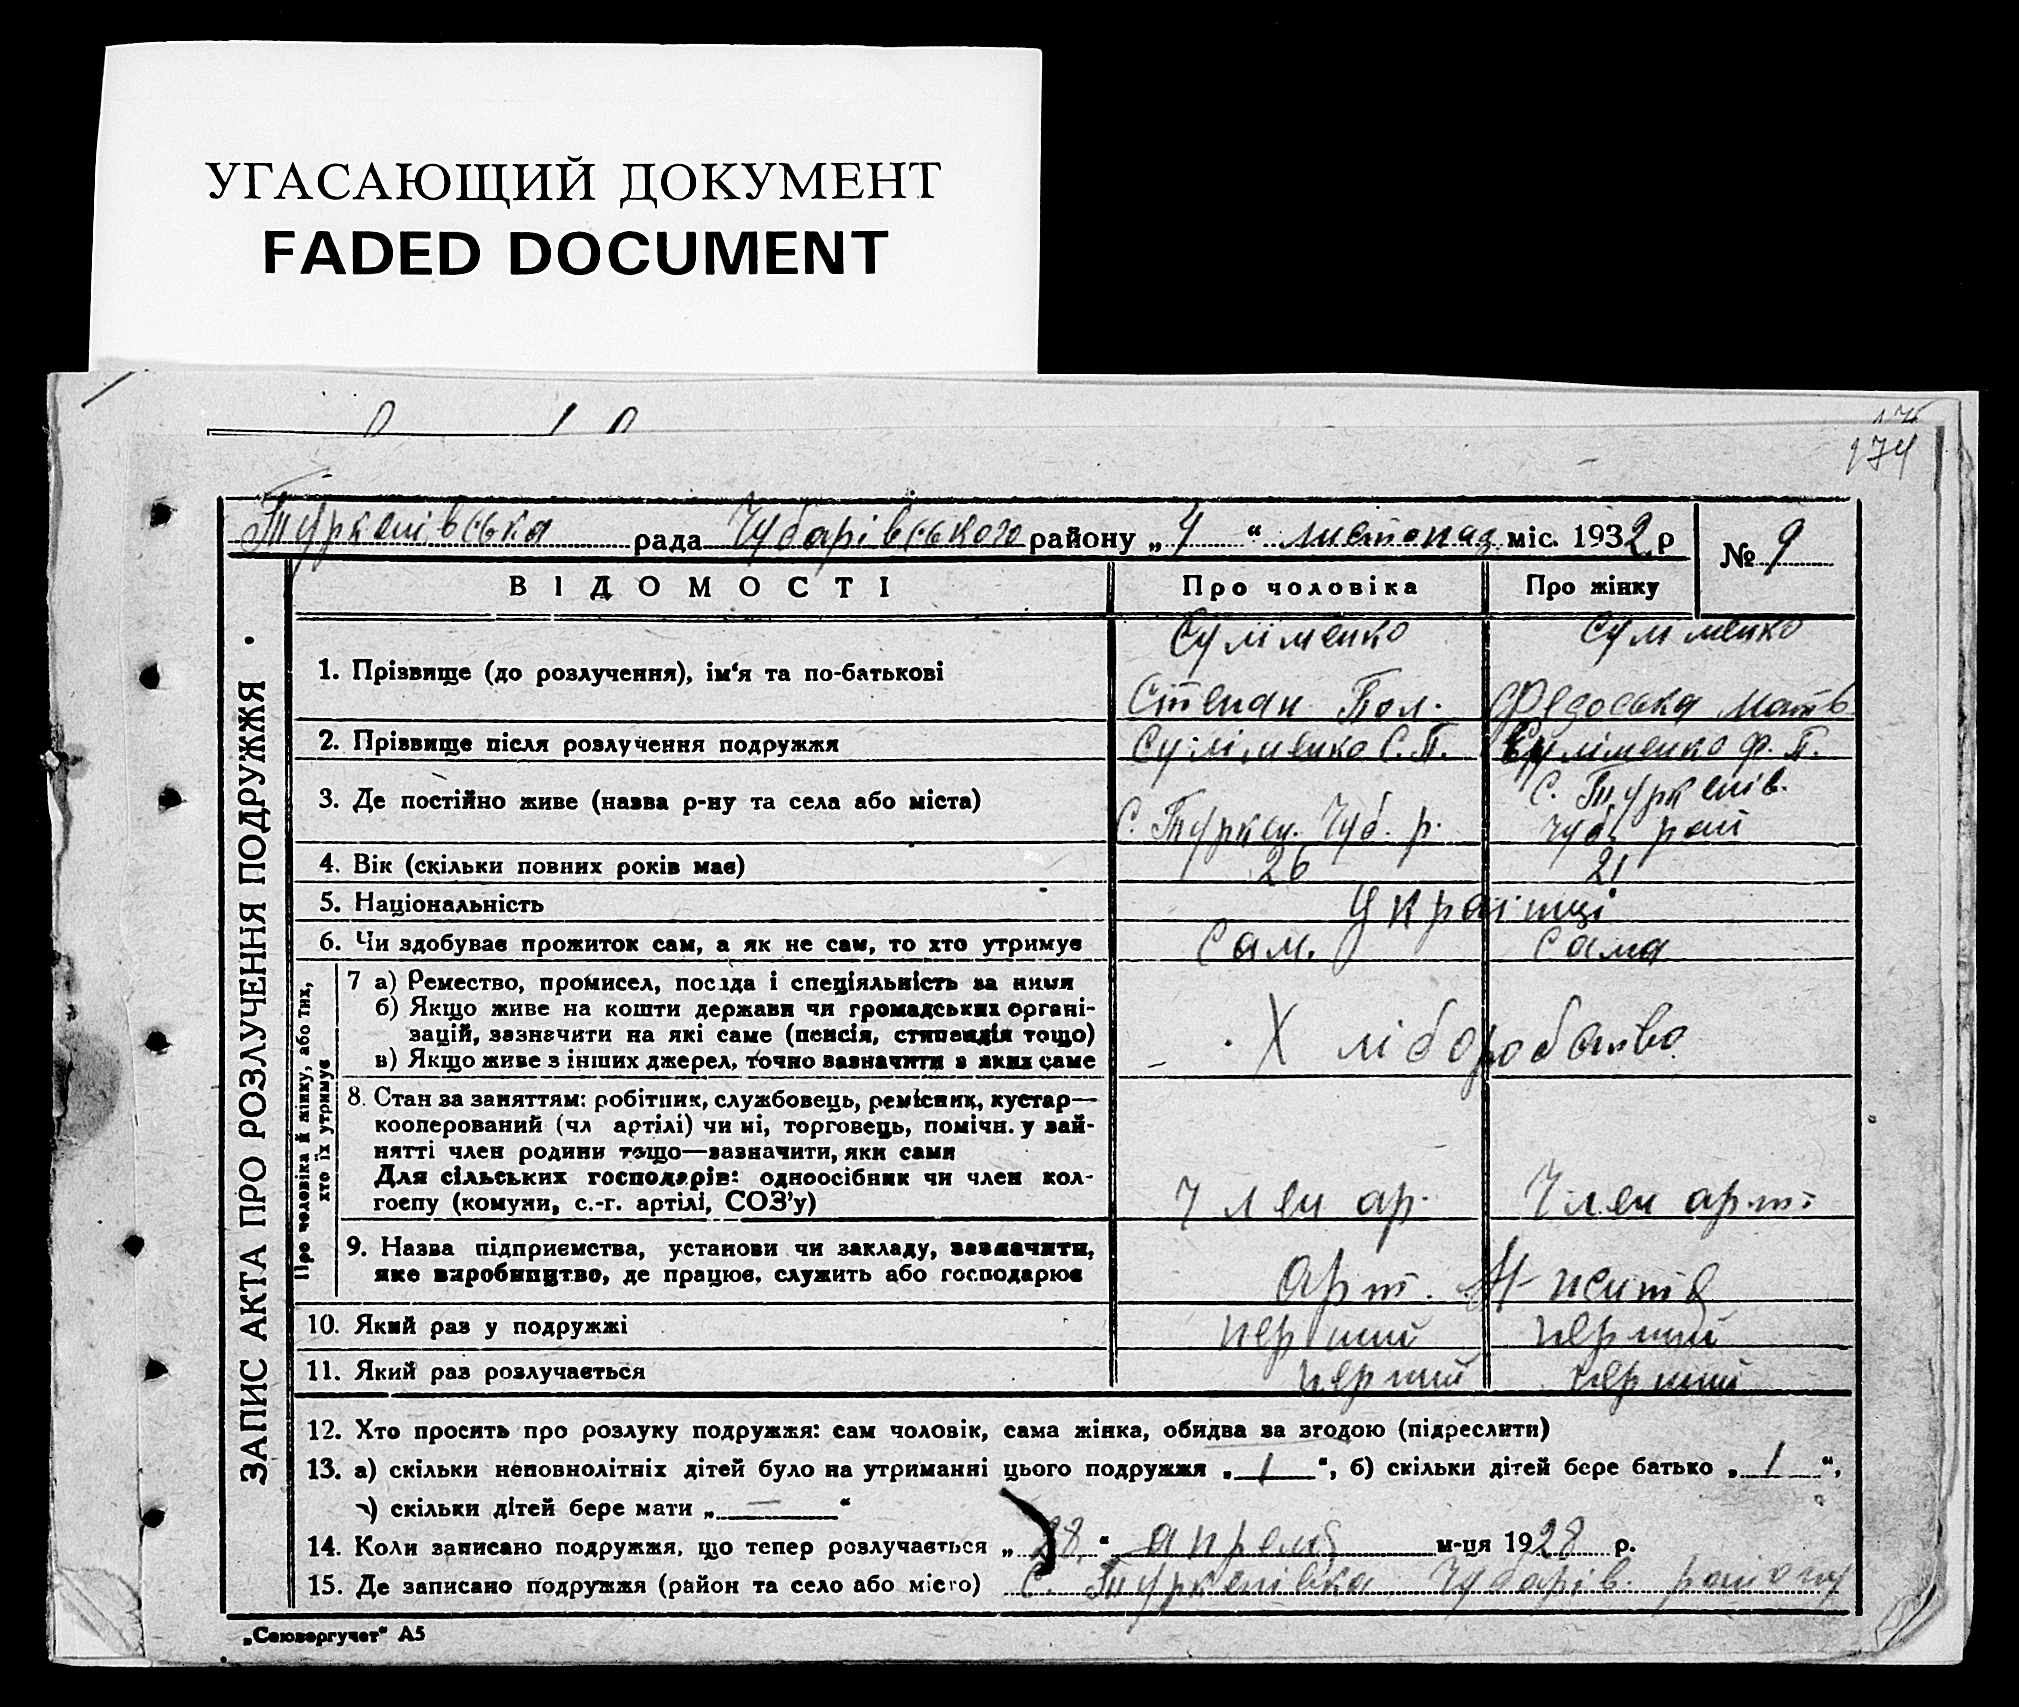 УГАСАЮЩИЙ ДОКУМЕНТ
FADED DOCUMENT
174
Туркенівська рада Чубарівського району „ 4 “ листопад міс. 1932 р
№ 9
ЗАПИС АКТА ПРО РОЗЛУЧЕННЯ ПОДРУЖЖЯ
ВІДОМОСТІ Про чоловіка Про жінку
1. Прізвище (до розлучення), ім‘я та по-батькові
Суліменко Суліменко
Степан Пол. Федоська Матв
2. Прізвище після розлучення подружжя Суліменко С. П. Суліменко Ф. П.
3. Де постійно живе (назва р-ну та села або міста)
С. Туркен. Чуб. р. С. Туркенів. Чуб. рай
4. Вік (скільки повних років має) 26 21
5. Національність Українці
6. Чи здобуває прожиток сам, а як не сам, то хто утримує Сам. Сама
Про чоловіка й жінку, або тих, хто їх утримує
7 а) Ремество, промисел, посада і спеціяльність за ними
б) Якщо живе на кошти держави чи громадських органі-
зацій, зазначити на які саме (пенсія, стипендія тощо)
в) Якщо живе з інших джерел, точно зазначити з яких саме
Хліборобство
8. Стан за заняттям: робітник, службовець, ремісник, кустар—
кооперований (чл артілі) чи ні, торговець, помічн. у зай-
нятті член родини тощо—зазначити, яки сами
Для сільських господарів: одноосібник чи член кол-
госпу (комуни, с.-г. артілі, СОЗ’у)
Член ар. Член арт.
9. Назва підприємства, установи чи закладу, зазначити,
яке виробництво, де працює, служить або господарює
Арт.
10. Який раз у подружжі перший перший
11. Який раз розлучається перший перший
12. Хто просить про розлуку подружжя: сам чоловік, сама жінка, обидва за згодою (підреслити)
13. а) скільки неповнолітніх дітей було на утриманні цього подружжя „ 1 “, б) скільки дітей бере батько „ 1 “,
в) скільки дітей бере мати „ — “
14. Коли записано подружжя, що тепер розлучається „ 28 “ апреля м-ця 1928 р.
15. Де записано подружжя (район та село або місто) С. Туркенівка Чубарів. району
„Союзоргучет“ А5